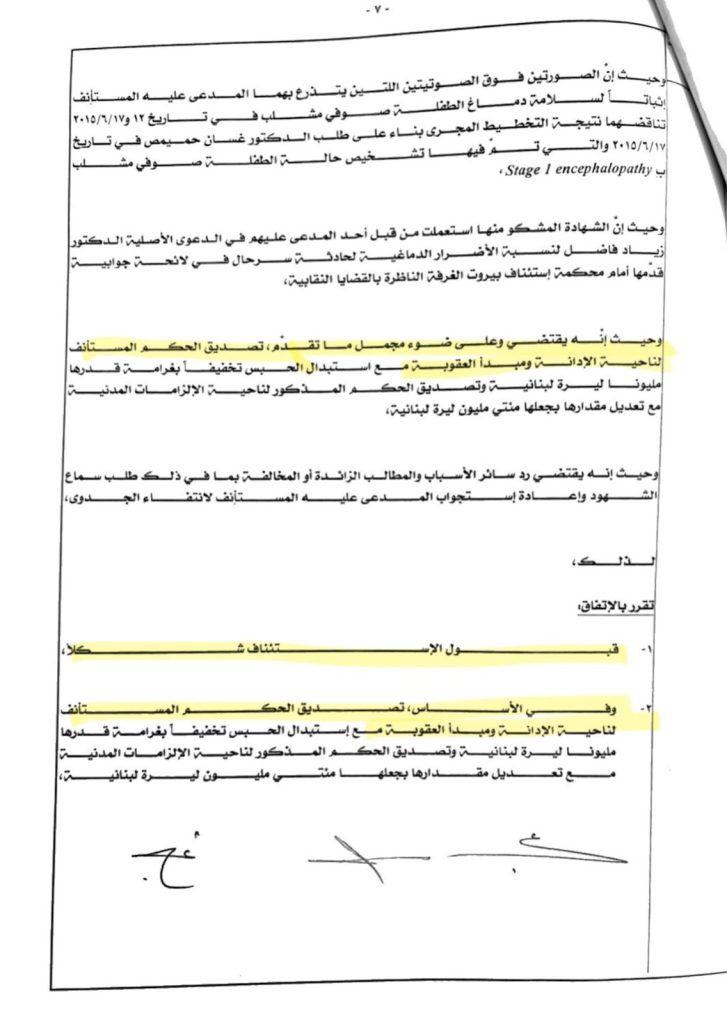 - ٧ -
وحيث إنّ الصورتين فوق الصوتيتين اللتين يتذرع بهما المدعى عليه المستأنف
إثباتاً لسلامة دماغ الطفلة صوفي مشلب في تاريخ ١٢ و٢٠١٥/٦/١٧
تناقضهما نتيجة التخطيط المجرى بناء على طلب الدكتور غسان حميمص في تاريخ
٢٠١٥/٦/١٧ والتي تمّ فيها تشخيص حالة الطفلة صوفي مشلب
ب Stage 1 encephalopathy،
وحيث إنّ الشهادة المشكو منها استعملت من قبل أحد المدعى عليهم في الدعوى الأصلية الدكتور
زياد فاضل لنسبة الأضرار الدماغية لحادثة سرحال في لائحة جوابية
قدّمها أمام محكمة إستئناف بيروت الغرفة الناظرة بالقضايا النقابية،
وحيث إنّه يقتضي وعلى ضوء مجمل ما تقدّم، تصديق الحكم المستأنف
لناحية الإدانة ومبدأ العقوبة مع استبدال الحبس تخفيفاً بغرامة قدرها
مليونا ليرة لبنانية وتصديق الحكم المذكور لناحية الإلزامات المدنية
مع تعديل مقدارها بجعلها مئتي مليون ليرة لبنانية،
وحيث إنه يقتضي رد سائر الأسباب والمطالب الزائدة أو المخالفة بما في ذلك طلب سماع
الشهود وإعادة إستجواب المدعى عليه المستأنف لانتفاء الجدوى،
لذلك،
تقرر بالإتفاق:
١- قبول الإستئناف شكلاً،
٢- وفي الأساس، تصديق الحكم المستأنف
لناحية الإدانة ومبدأ العقوبة مع إستبدال الحبس تخفيفاً بغرامة قدرها
مليونا ليرة لبنانية وتصديق الحكم المذكور لناحية الإلزامات المدنية
مع تعديل مقدارها بجعلها مئتي مليون ليرة لبنانية،